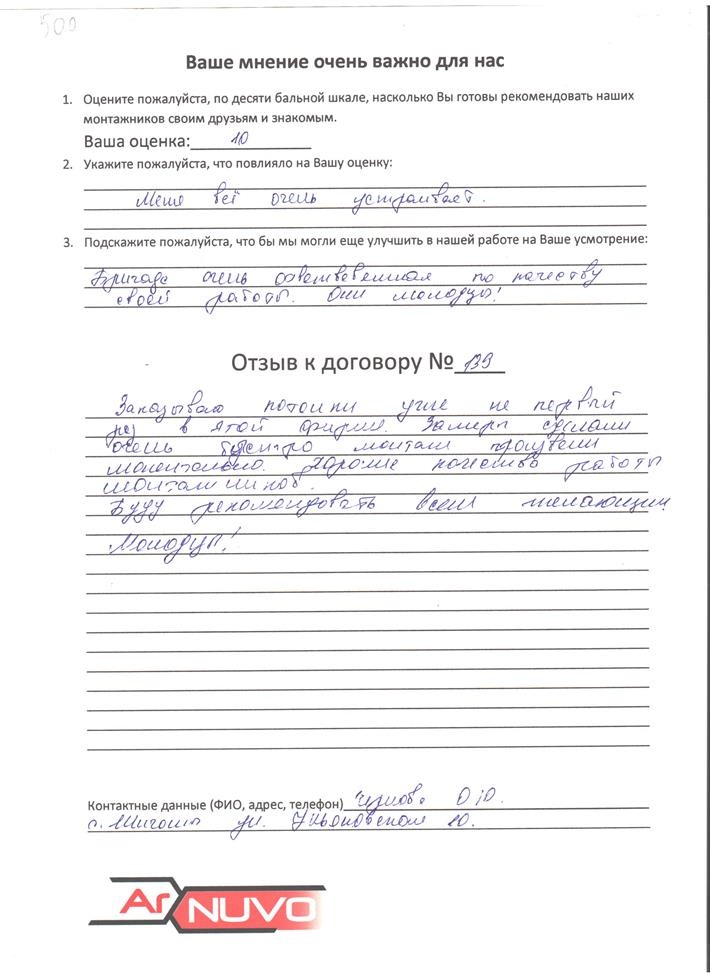 500
Ваше мнение очень важно для нас
1. Оцените пожалуйста, по десяти бальной шкале, насколько Вы готовы рекомендовать наших
монтажников своим друзьям и знакомым.
Ваша оценка: 10
2. Укажите пожалуйста, что повлияло на Вашу оценку:
Меня всё очень устраивает.
3. Подскажите пожалуйста, что бы мы могли еще улучшить в нашей работе на Ваше усмотрение:
Бригада очень ответственная по качеству
своей работы. Они молодцы!
Отзыв к договору № 139
Заказываю потолки уже не первый
раз в этой фирме. Замеры сделали
очень быстро монтаж произвели
моментально. Хорошее качество работы
монтажников.
Буду рекомендовать всем желающим.
Молодцы!
Контактные данные (ФИО, адрес, телефон) О.Ю.
ул. Ульяновская 10.
Ar NUVO